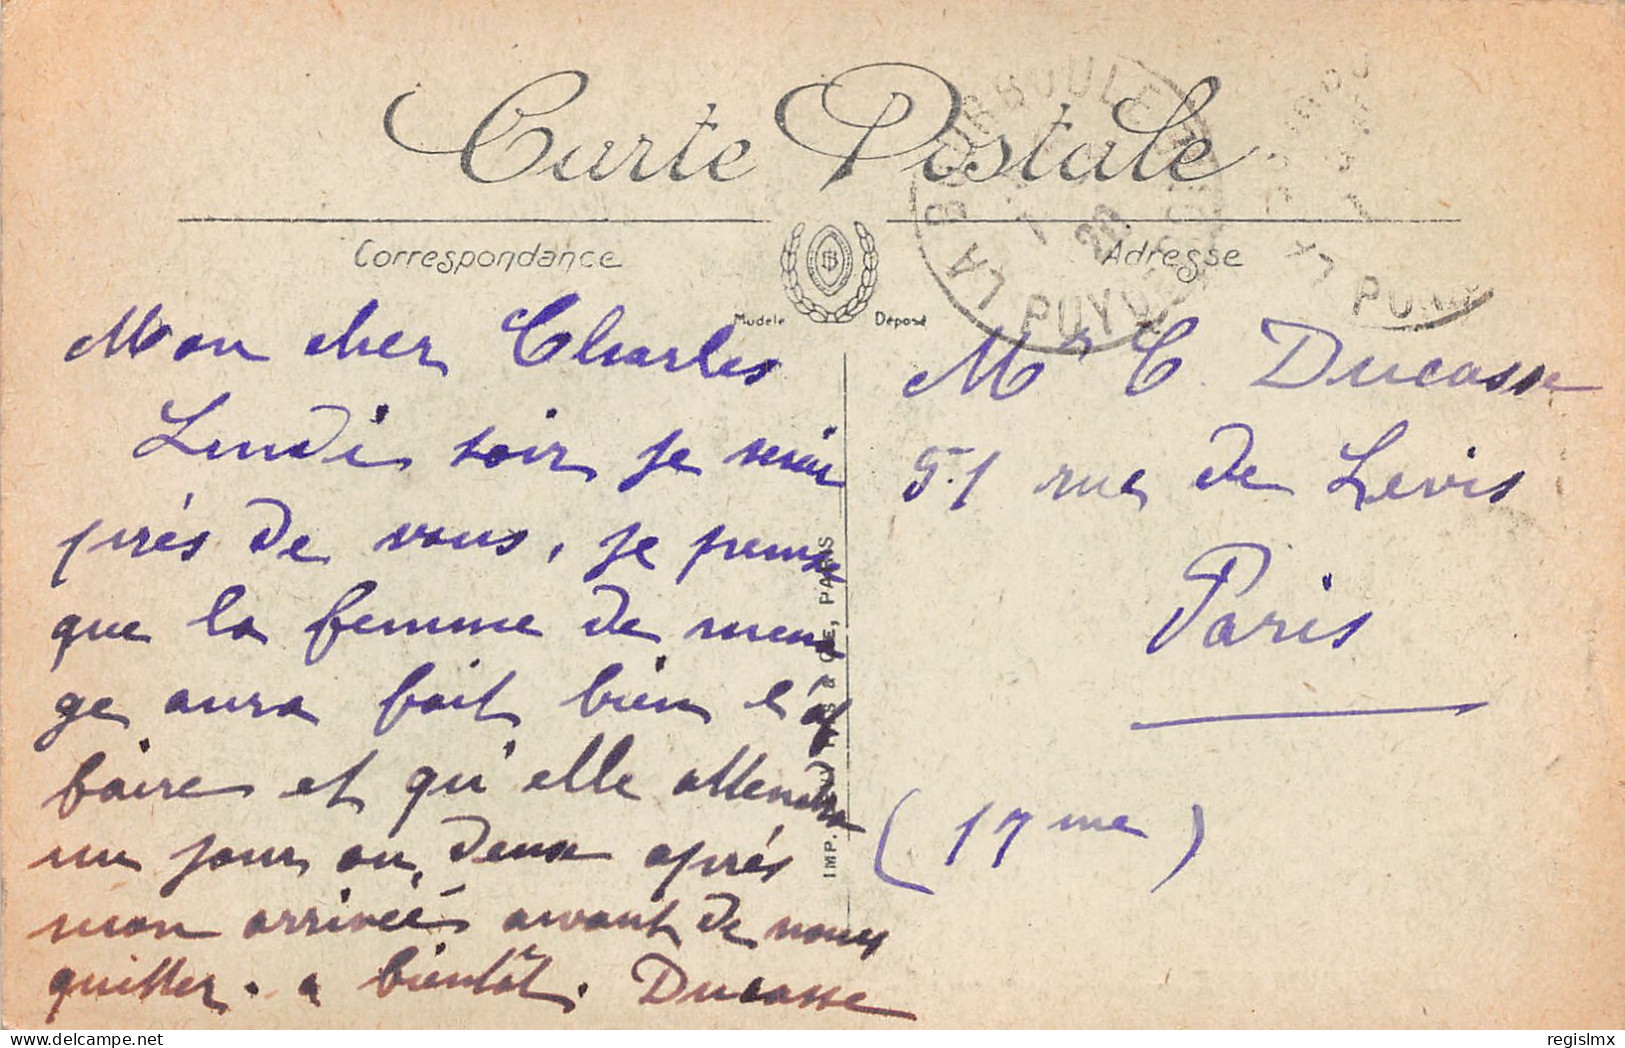 Carte Postale
Correspondance
Adresse
Modèle Déposé
LA BOURBOULE
PUY DE
20
Mon cher Charles
Lundi soir je serai
près de vous, je pense
que la femme de mena
ge aura fait bien l'af
faire et qu'elle attendra
un jour ou deux après
mon arrivée avant de nous
quitter. a bientôt. Ducasse
Mr C. Ducasse
51 rue de Levis
Paris
(17me)
IMP. & CIE, PARIS
https://www.delcampe.net
regislmx